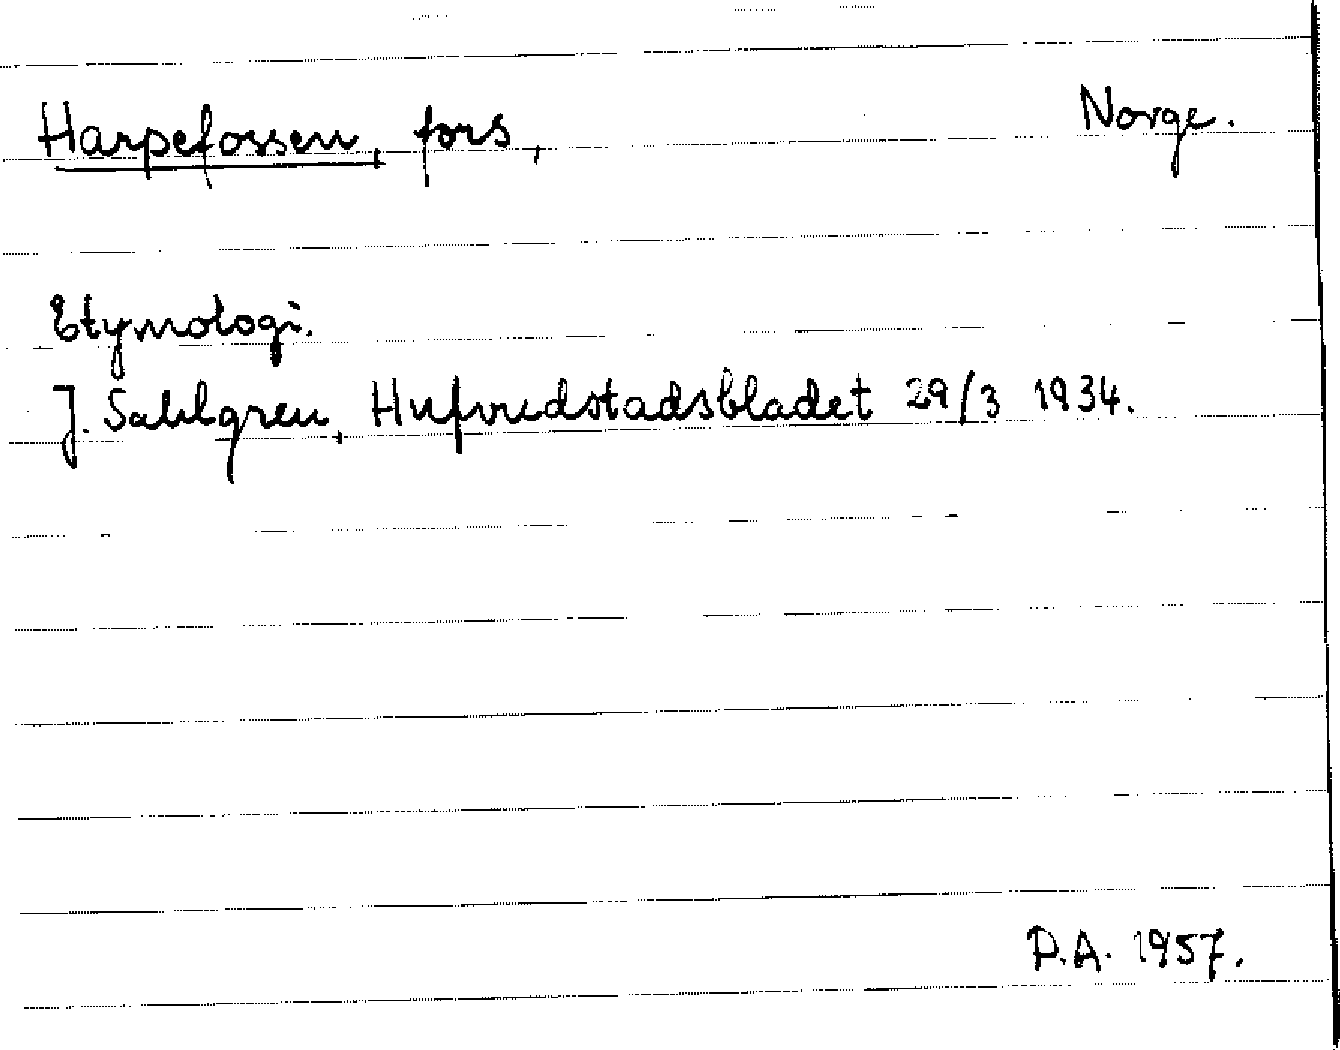 Harpefossen, fors, Norge.
Etymologi.
J. Sahlgren, Hufvudstadsbladet 29/3 1934.
P.A. 1957.